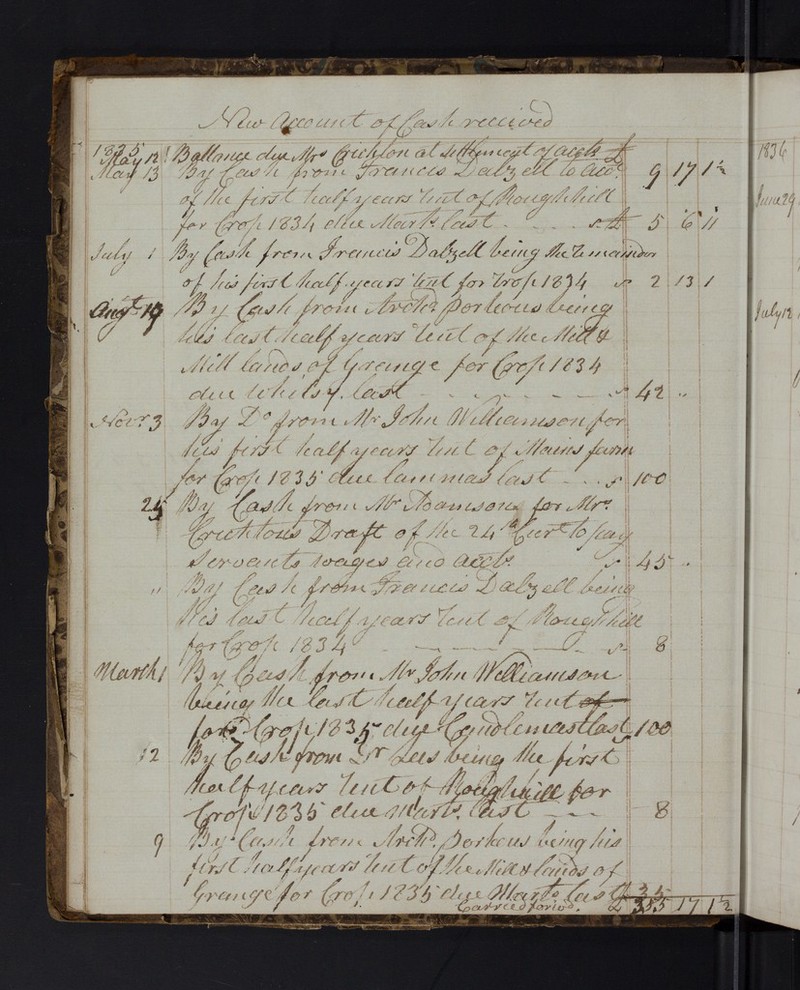 New Account of Cash received
1835
May 12 Ballance due Mrs Crichton at settlement of accts £ 9 17 1½
May 13 By Cash from Francis Dalzell to acct
of the first half years rent of Roughhill
for Crop 1834 due Marts last - - - £ 5 6 11
July 1 By Cash from Francis Dalzell being the remaindor
of his first half years rent for Crop 1834 2 13 1
Augt 19 By Cash from Archd Porteous being
his last half years rent of the Mill &
Mill lands of Grainge for Crop 1834
due Whitsy. last - - - 42 "
Novr 3 By Do from Mr John Williamson for
his first half years rent of Mains farm
for Crop 1835 due lammas last - - 100
25 By Cash from Mr Adamson for Mrs
Crichtons Draft of the 24th Curt to pay
Servants wages and accts 45 "
" By Cash from Francis Dalzell being
his last half years rent of Roughhill
for Crop 1834 - - - 8
March 1 By Cash from Mr John Williamson
being the last half years rent of
for Crop 1835 due Candlemas last 100
12 By Cash from Lees being the first
half years rent of Roughhill for
Crop 1835 due Marts. last - - 8
9 By Cash from Archd. Porteous being his
first half years rent of the Mill & lands of
Grange for Crop 1835 due Marts last 35
Carried forwd. £ 355 17 1½
1836
June 29
July 12